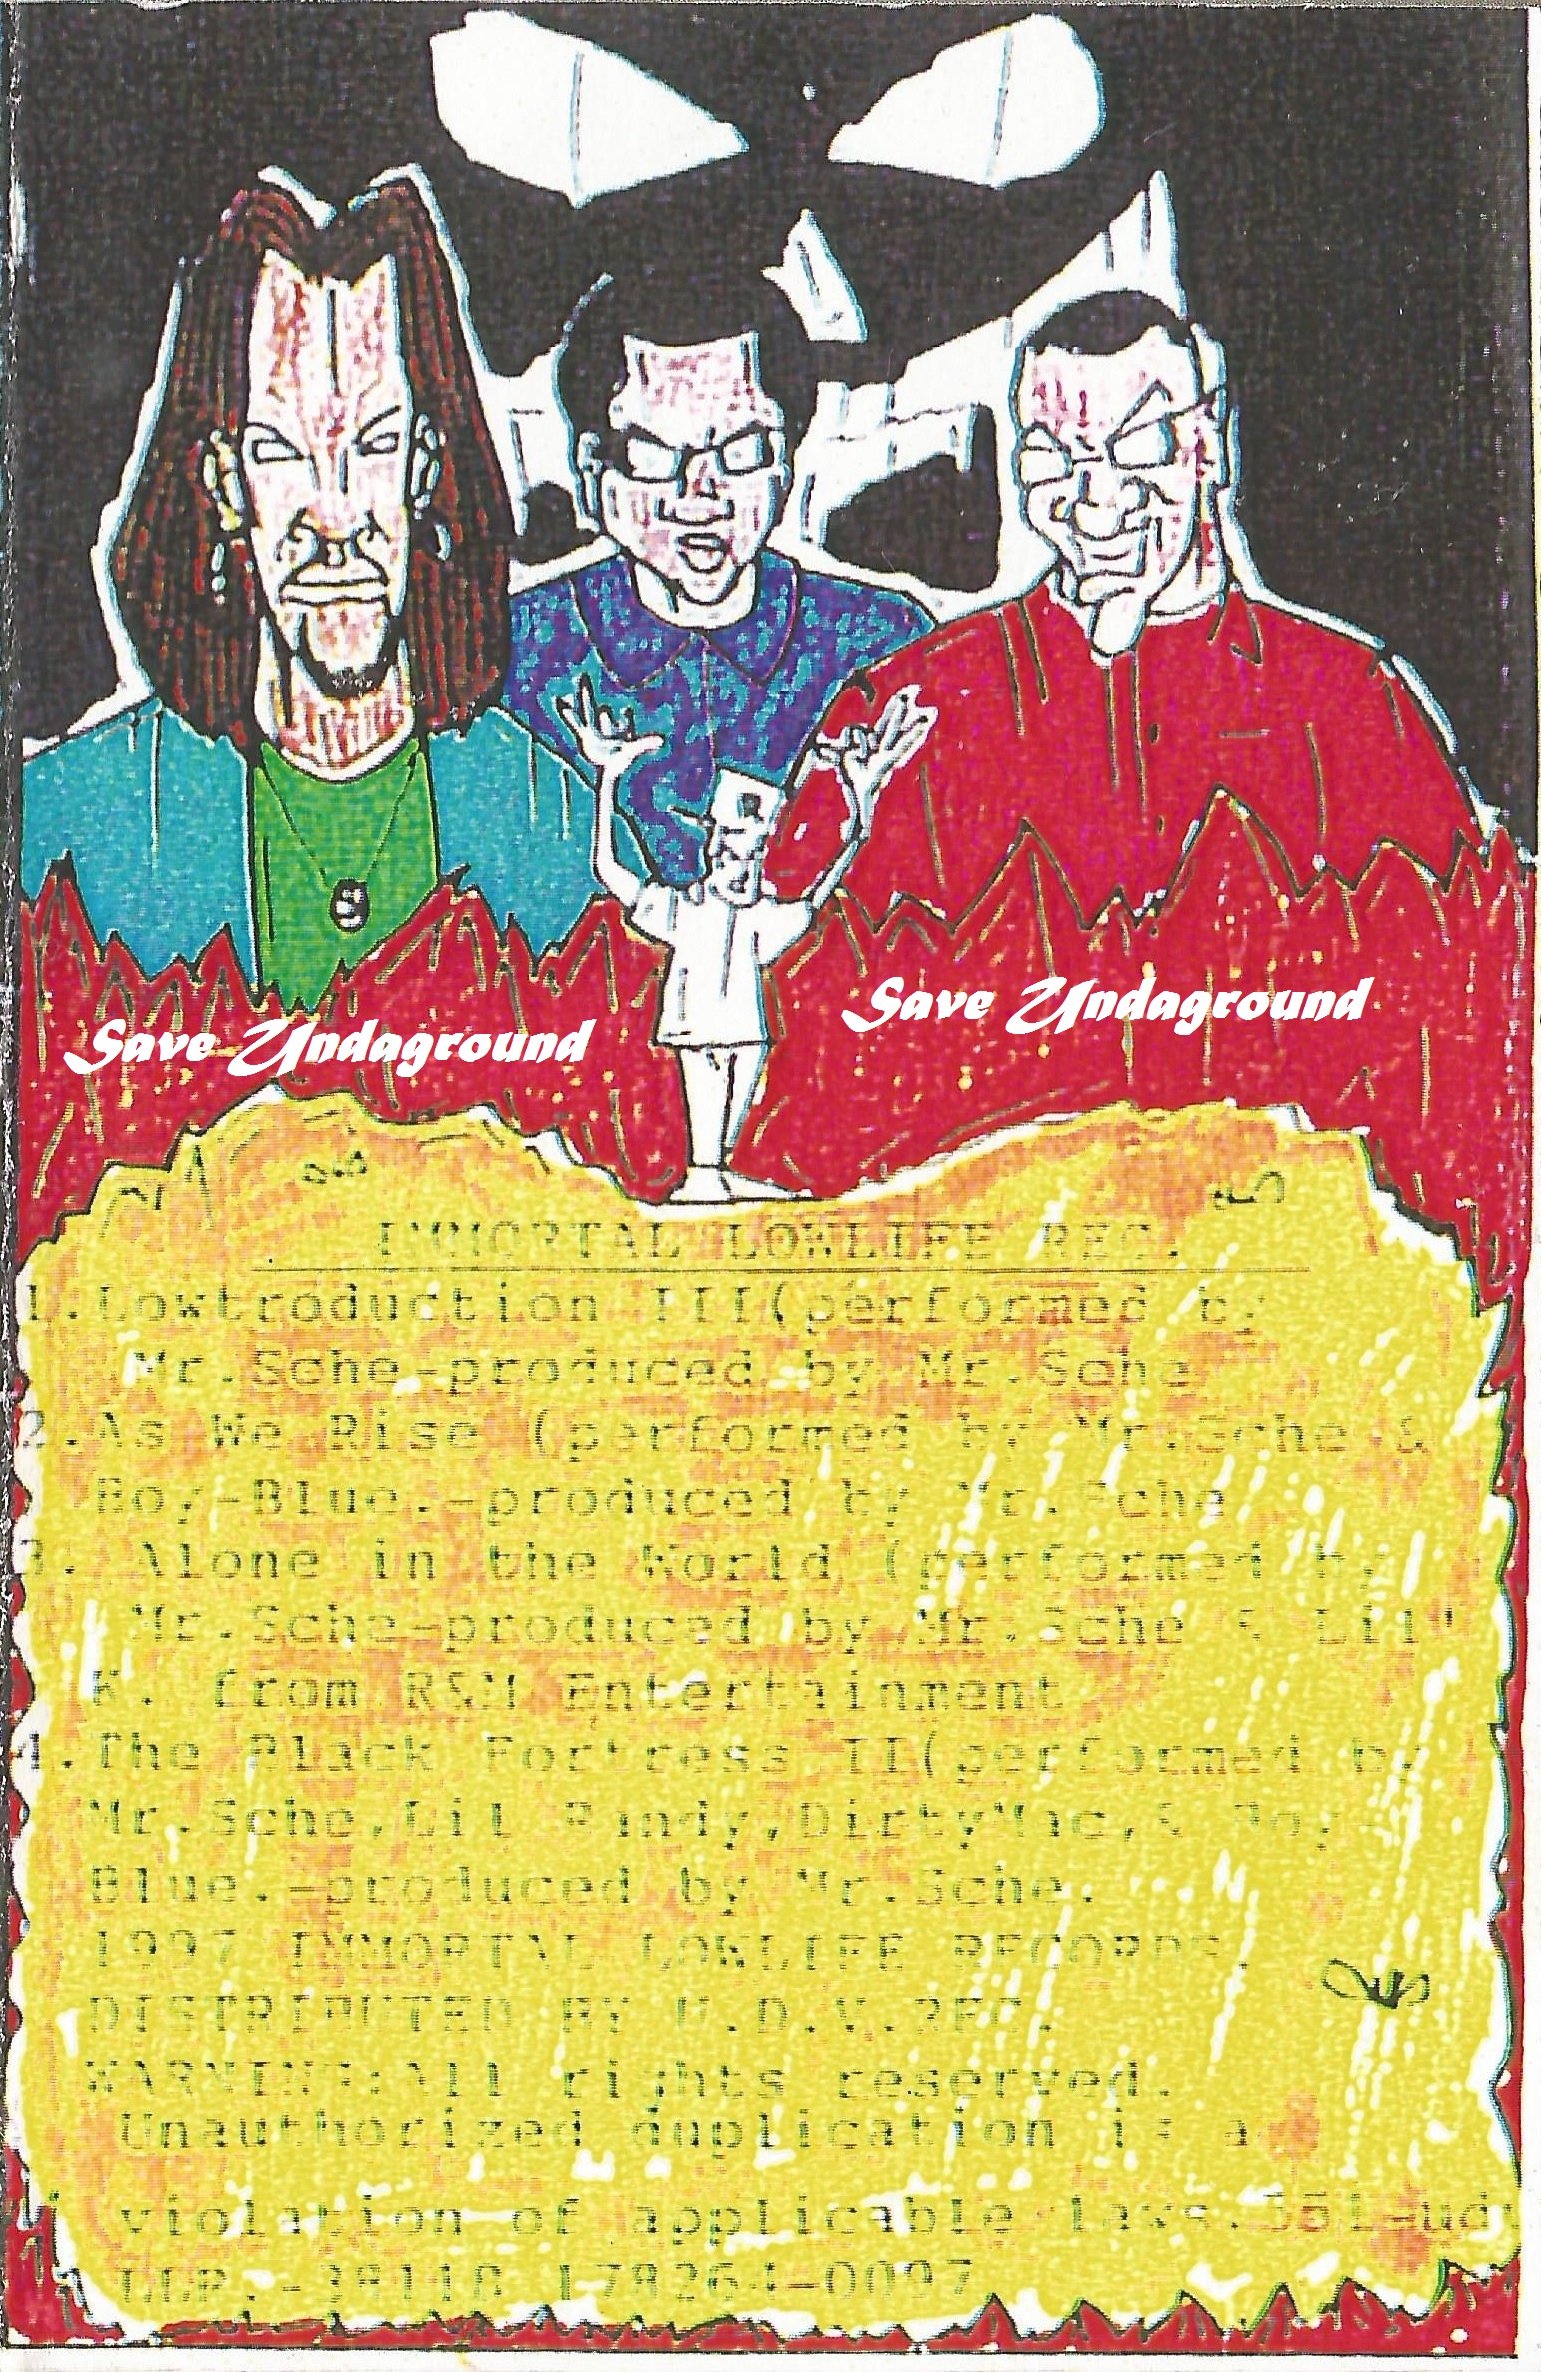 Save Undaground
Save Undaground
IMMORTAL LOWLIFE REC.
1.Lowtroduction III(performed by
Mr.Sche-produced by Mr.Sche
2.As We Rise (performed by Mr.Sche &
Boy-Blue.-produced by Mr.Sche
3. Alone in the World (performed by
Mr.Sche-produced by Mr.Sche & Lil'
K. from RSM Entertainment
4.The Black Fortress II(performed by
Mr.Sche,Lil Randy,DirtyMac,& Boy-
Blue.-produced by Mr.Sche.
1997 IMMORTAL LOWLIFE RECORDS.
DISTRIBUTED BY REC.
WARNING:All rights reserved.
Unauthorized duplication is a
violation of applicable laws.